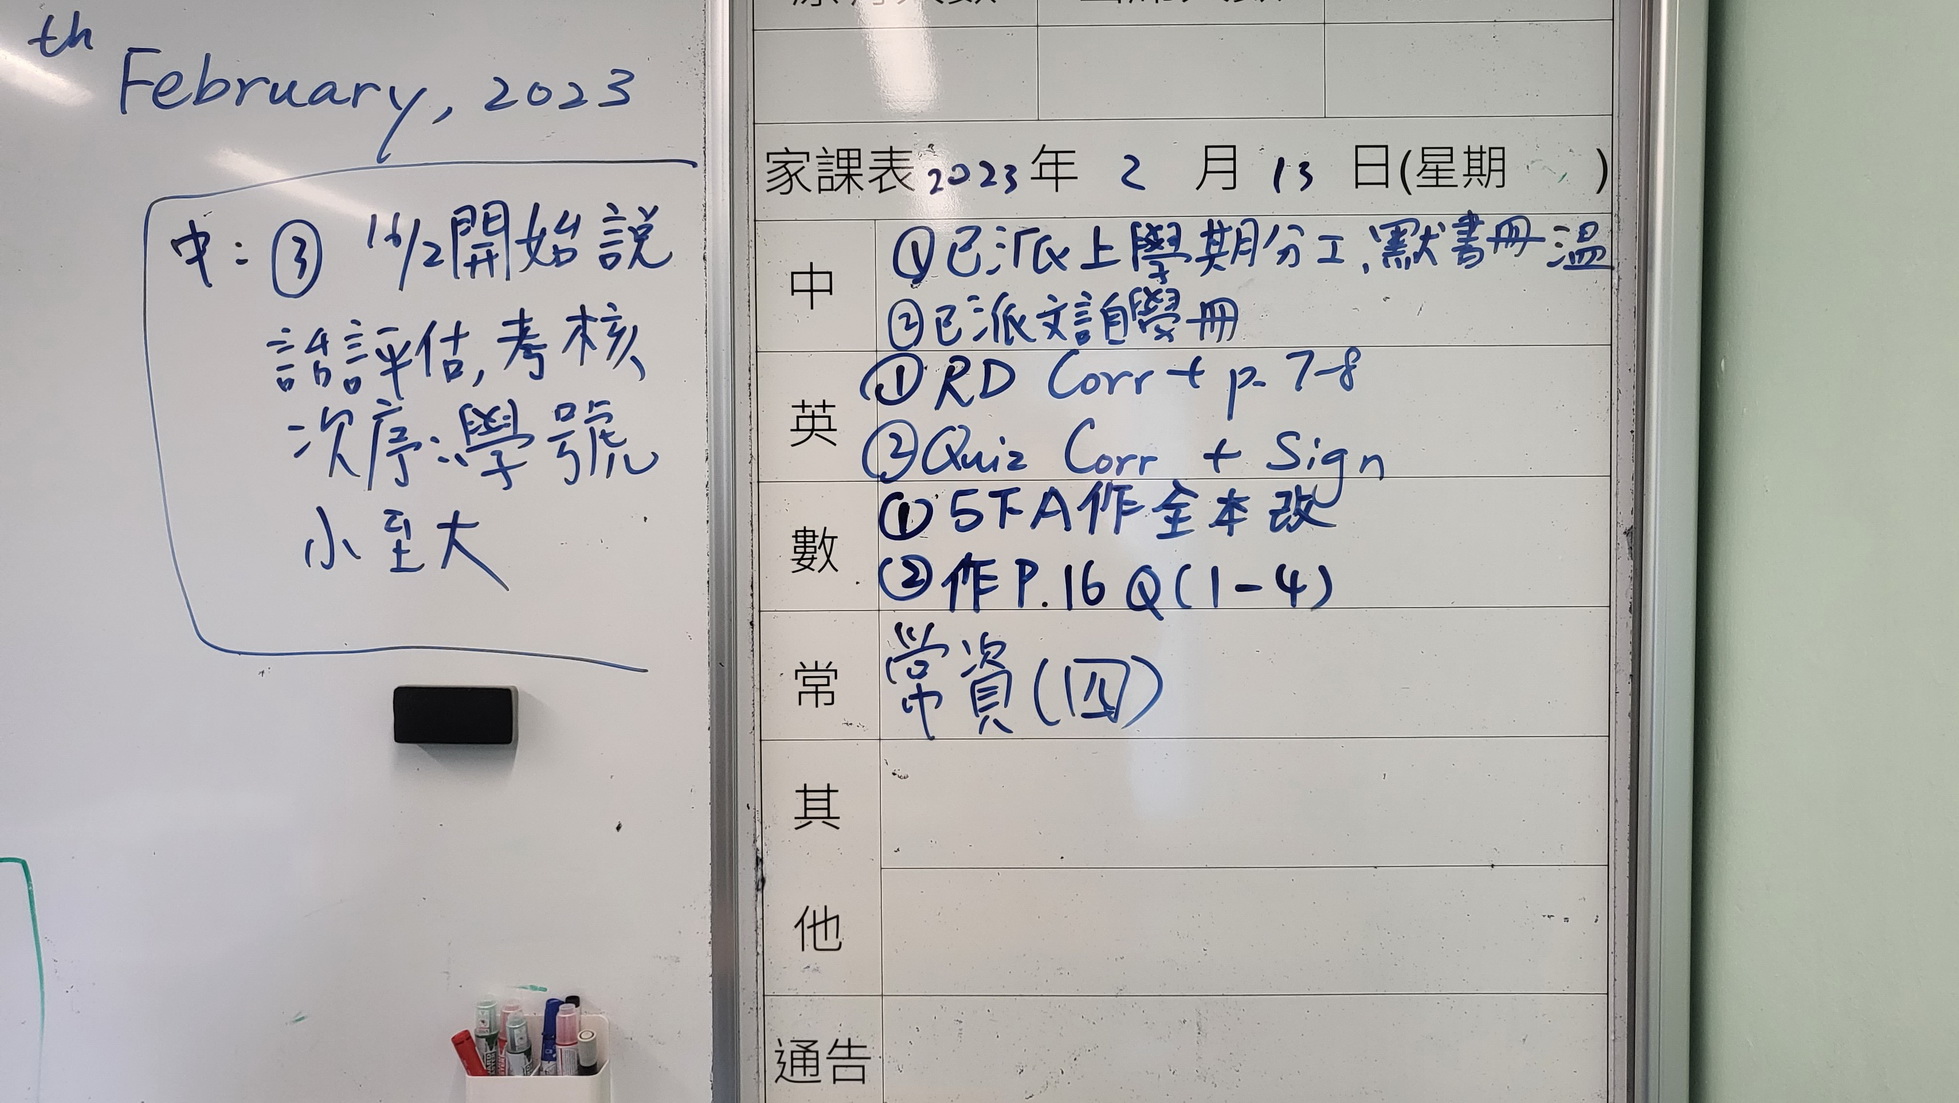 th
February, 2023
中: ③ 16/2開始說
話評估, 考核
次序:學號
小至大
家課表2023年 2 月 13 日(星期 )
中
①已派上學期分工,默書冊溫
②已派文言自學冊
英
①RD Corr + p. 7-8
②Quiz Corr + Sign
數
①5下A作全本改
②作P.16 Q(1-4)
常
常資(四)
其
他
通告